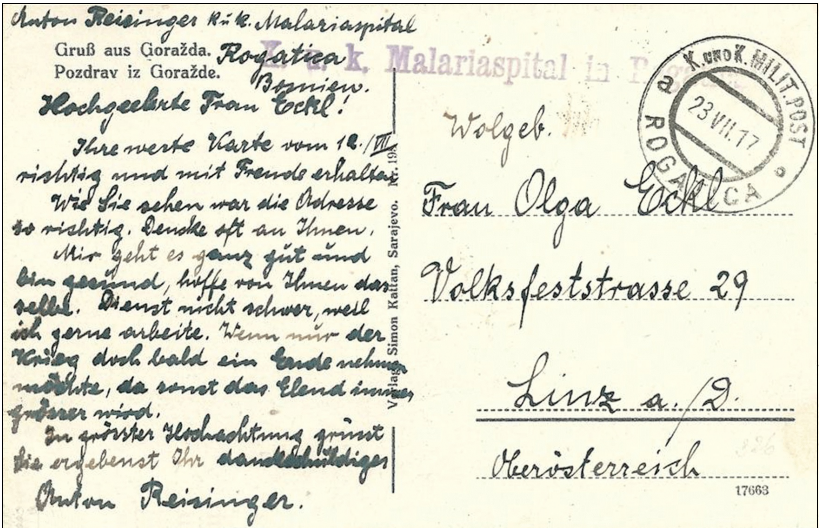 Anton Reisinger k.u.k. Malariaspital
Gruß aus Goražda. Rogatica
Pozdrav iz Goražde.
Bosnien.
K. u. k. Malariaspital in Rogatica
Hochgeehrte Frau Eckl!
Ihre werte Karte vom 12./VII
richtig und mit Freude erhalten
Wie Sie sehen war die Adresse
so richtig. Dencke oft an Ihnen.
Mir geht es ganz gut und
bin gesund, hoffe von Ihnen das
selbe. Dienst nicht schwer, weil
ich gerne arbeite. Wenn nur der
Krieg doch bald ein Ende nehmen
möchte, da sonst das Elend immer
grösser wird.
In grösster Hochachtung grüsst
Sie ergebenst Ihr dankschuldiger
Anton Reisinger.
Verlag Simon Kattan, Sarajevo.
K. UND K. MILIT. POST
a
ROGATICA
23 VII. 17
Wolgeb.
Frau Olga Eckl
Volksfeststrasse 29
Linz a./D.
Oberösterreich
326
17663